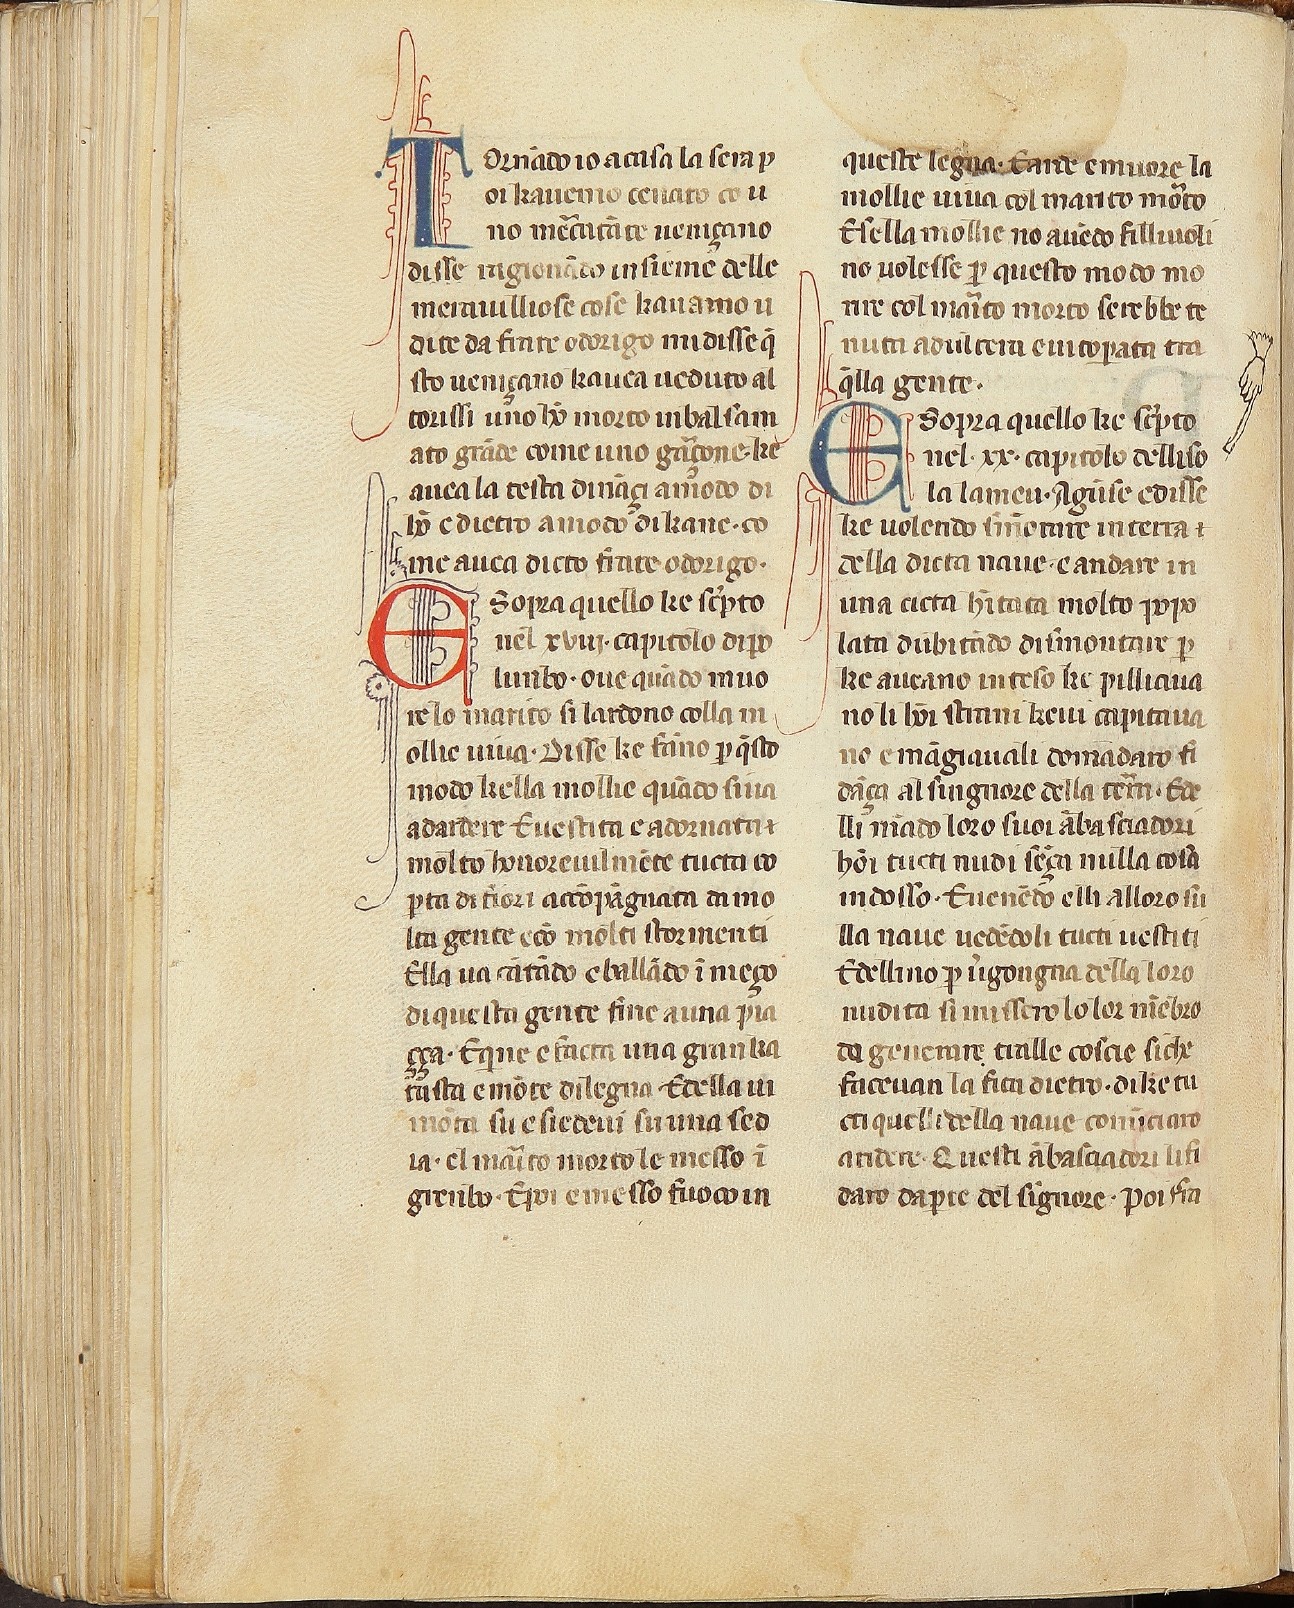 Tornādo io a casa la sera p
oi kauemo cenato co u
no mēcatāte ueniçano
disse ragionādo insieme delle
merauilliose cose kauamo u
dite da frate odorigo mi disse q̄
sto ueniçano kauea ueduto al
torissi uno hō morto inbalsam
ato grāde come uno garçone ke
auea la testa dināçi a modo di
hō e dietro a modo di kane · co
me auea dicto frate odorigo ·
E Sopra quello ke sc̄pto
nel xviij · capitolo di po
lunbo · oue quādo muo
re lo marito si lardono colla m
ollie uiua · Disse ke fāno p q̄sto
modo kella mollie quādo si ua
ad ardere E uestita e adornata ⁊
molto honoreuilmēte tucta co
pta di fiori accōpāgnata da mo
lta gente e cō molti stormenti
Ella ua cātādo e ballādo ī meço
di questa gente fine a una pia
çça · E que e facta una gran ka
tasta e mōte di legna · Edella ui
mōta su e siedeui su una sed
ia · el marito morto le messo ī
grenbo · E poi e messo fuoco in
queste legna · E arde e muore la
mollie uiua col marito morto
E se lla mollie no auēdo filliuoli
no uolesse p questo modo mo
rire col marito morto serebbe te
nuta adultera e uitoperata tra
q̄lla gente ·
E Sopra quello ke sc̄pto
nel · xx · capitolo dell iso
la lameu · Agiūse e disse
ke uolendo smōtare in terra ⁊
della dicta naue · e andare in
una cicta hītata molto popo
lata dubitādo di smontare p
ke aueano inteso ke pilliaua
no li hōi strani ke ui capitaua
no e māgiauali domādaro fi
dāça al singnore della terra · Ede
lli mādo loro suoi ābasciadori
hōi tucti nudi sēça nulla cosa
indosso · E uenēdo elli alloro su
lla naue uedēdoli tucti uestiti
Edellino p u̇gongna della loro
nudita si missero lo lor mēbro
da generare tralle coscie siche
faceuan la fica dietro · di ke tu
cti quelli della naue comīciaro
a ridere · Questi ābasciadori li fi
daro da pte del signore · Poi fra